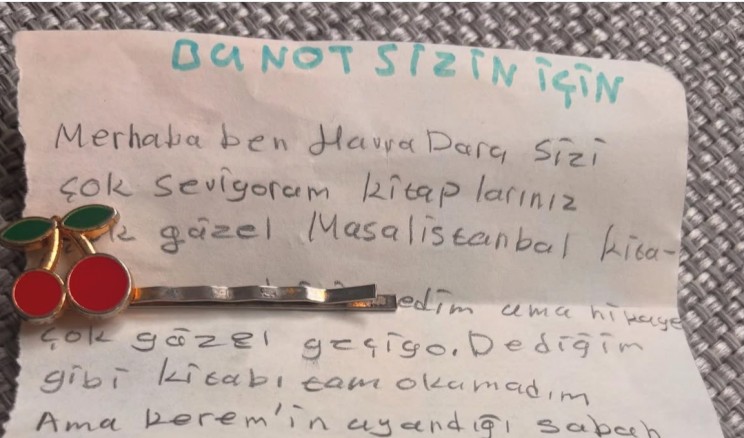 BU NOT SİZİN İÇİN
Merhaba ben Havva Dara sizi
çok seviyoram kitap larınız
güzel Masalistanbul kita-
edim ama hikaye
çok güzel geçiyo. Dediğim
gibi kitabı tam okumadım
Ama kerem'in uyandığı sabah